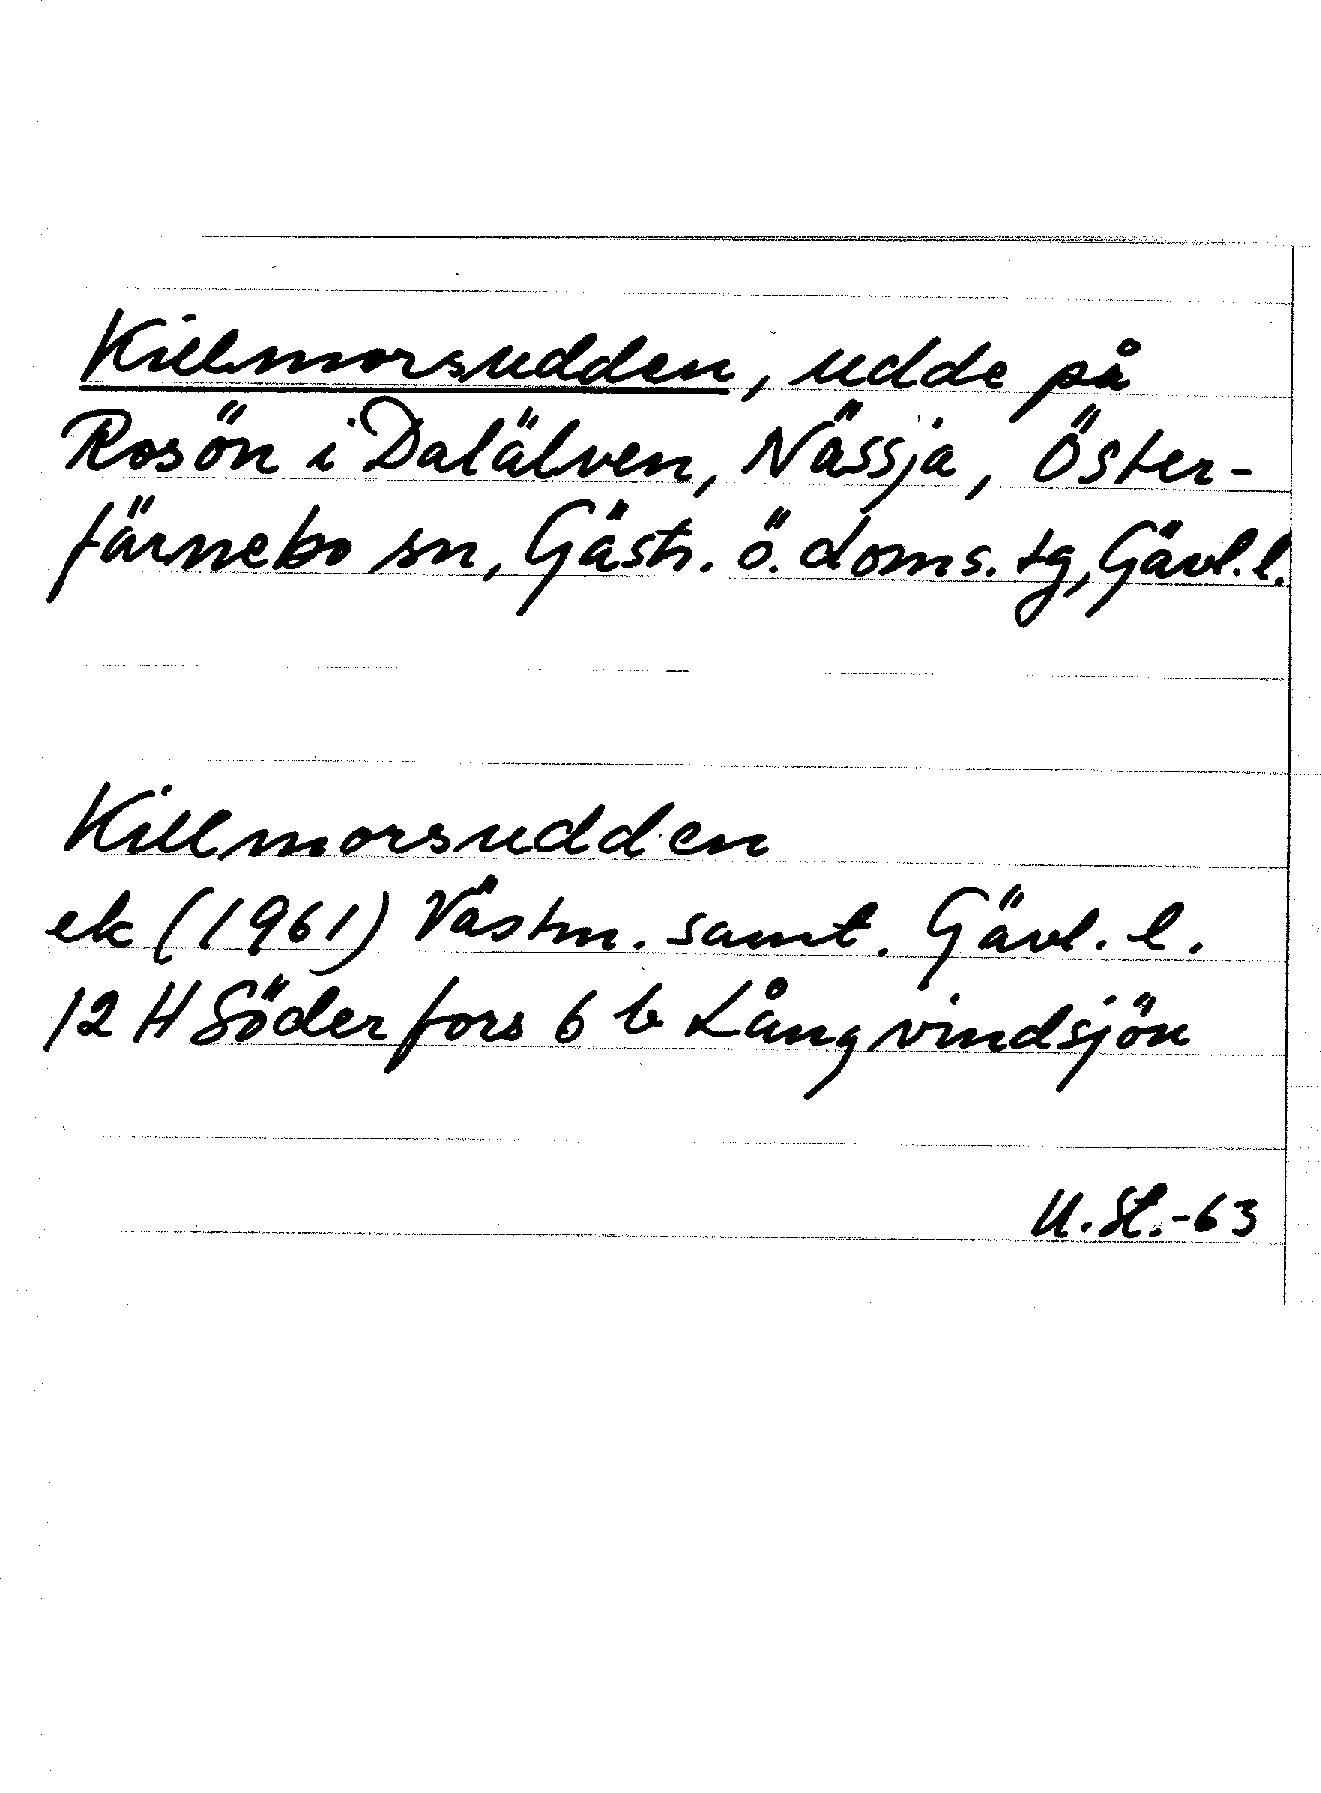 Killmorsudden, udde på
Rosön i Dalälven, Nässja, Öster-
färnebo sn, Gästr. ö. doms. tg, Gävl. l.
Killmorsudden
ek (1961) Västm. samt. Gävl. l.
12 H Söderfors 6 b Långvindsjön
U. St. -63